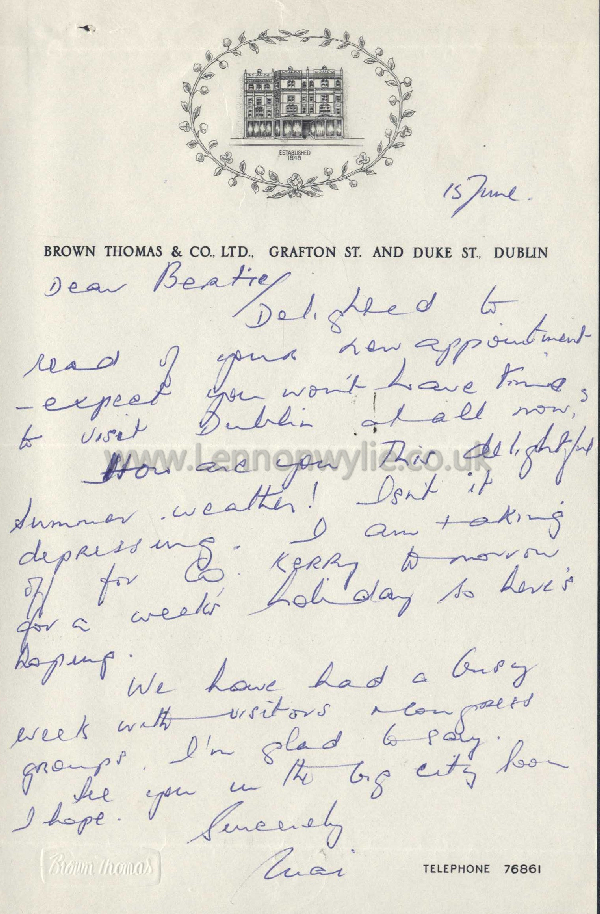 ESTABLISHED
1849
15 June.
BROWN THOMAS & CO., LTD., GRAFTON ST. AND DUKE ST., DUBLIN
Dear Beatie/
Delighted to
read of your new appointment
- expect you won't have time
to visit Dublin at all now,
www.Lennonwylie.co.uk
How are you this delightful
summer weather! Isnt it
depressing. I am taking
off for Co. Kerry tomorrow
for a weeks holiday so here's
hoping.
We have had a busy
week with visitors & congress
groups, I'm glad to say.
See you in the big city soon
I hope.
Sincerely
Mai
Brown Thomas
TELEPHONE 76861